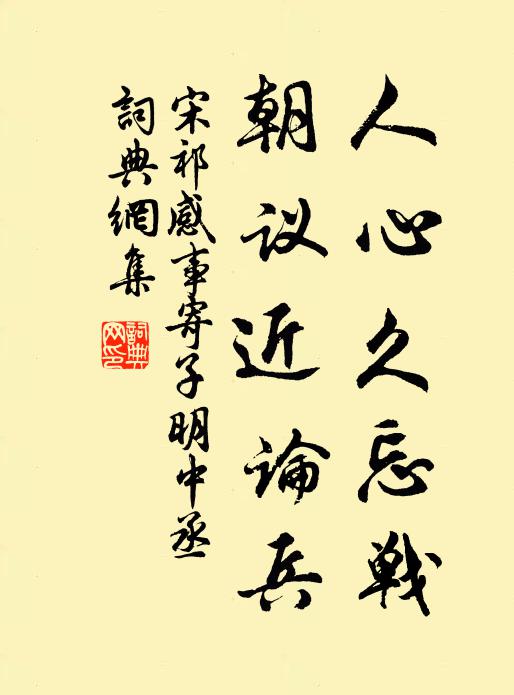 人心久忘戦
朝议近論兵
宋祁感事寄子明中丞
詞典網集
詞典网印